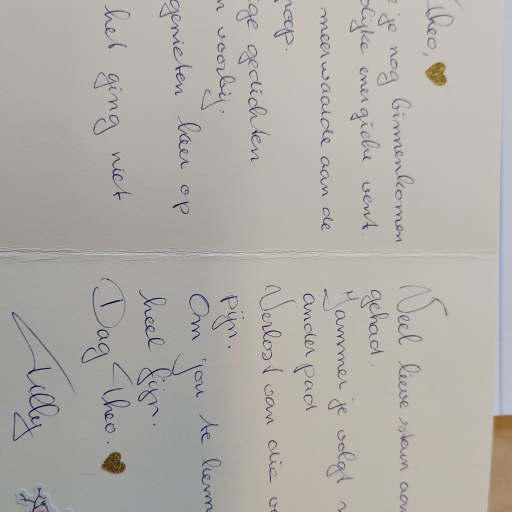 Theo,
je nog binnenkomen
energieke vent.
meerwaarde aan de
gedichten
voorbij.
genieten keer op
het ging niet
Veel lieve steun aan
gehad.
Jammer je volgt
ander pad
Verlost van die
pijn.
Om jou te kennen
heel fijn.
Dag Theo.
Tilly